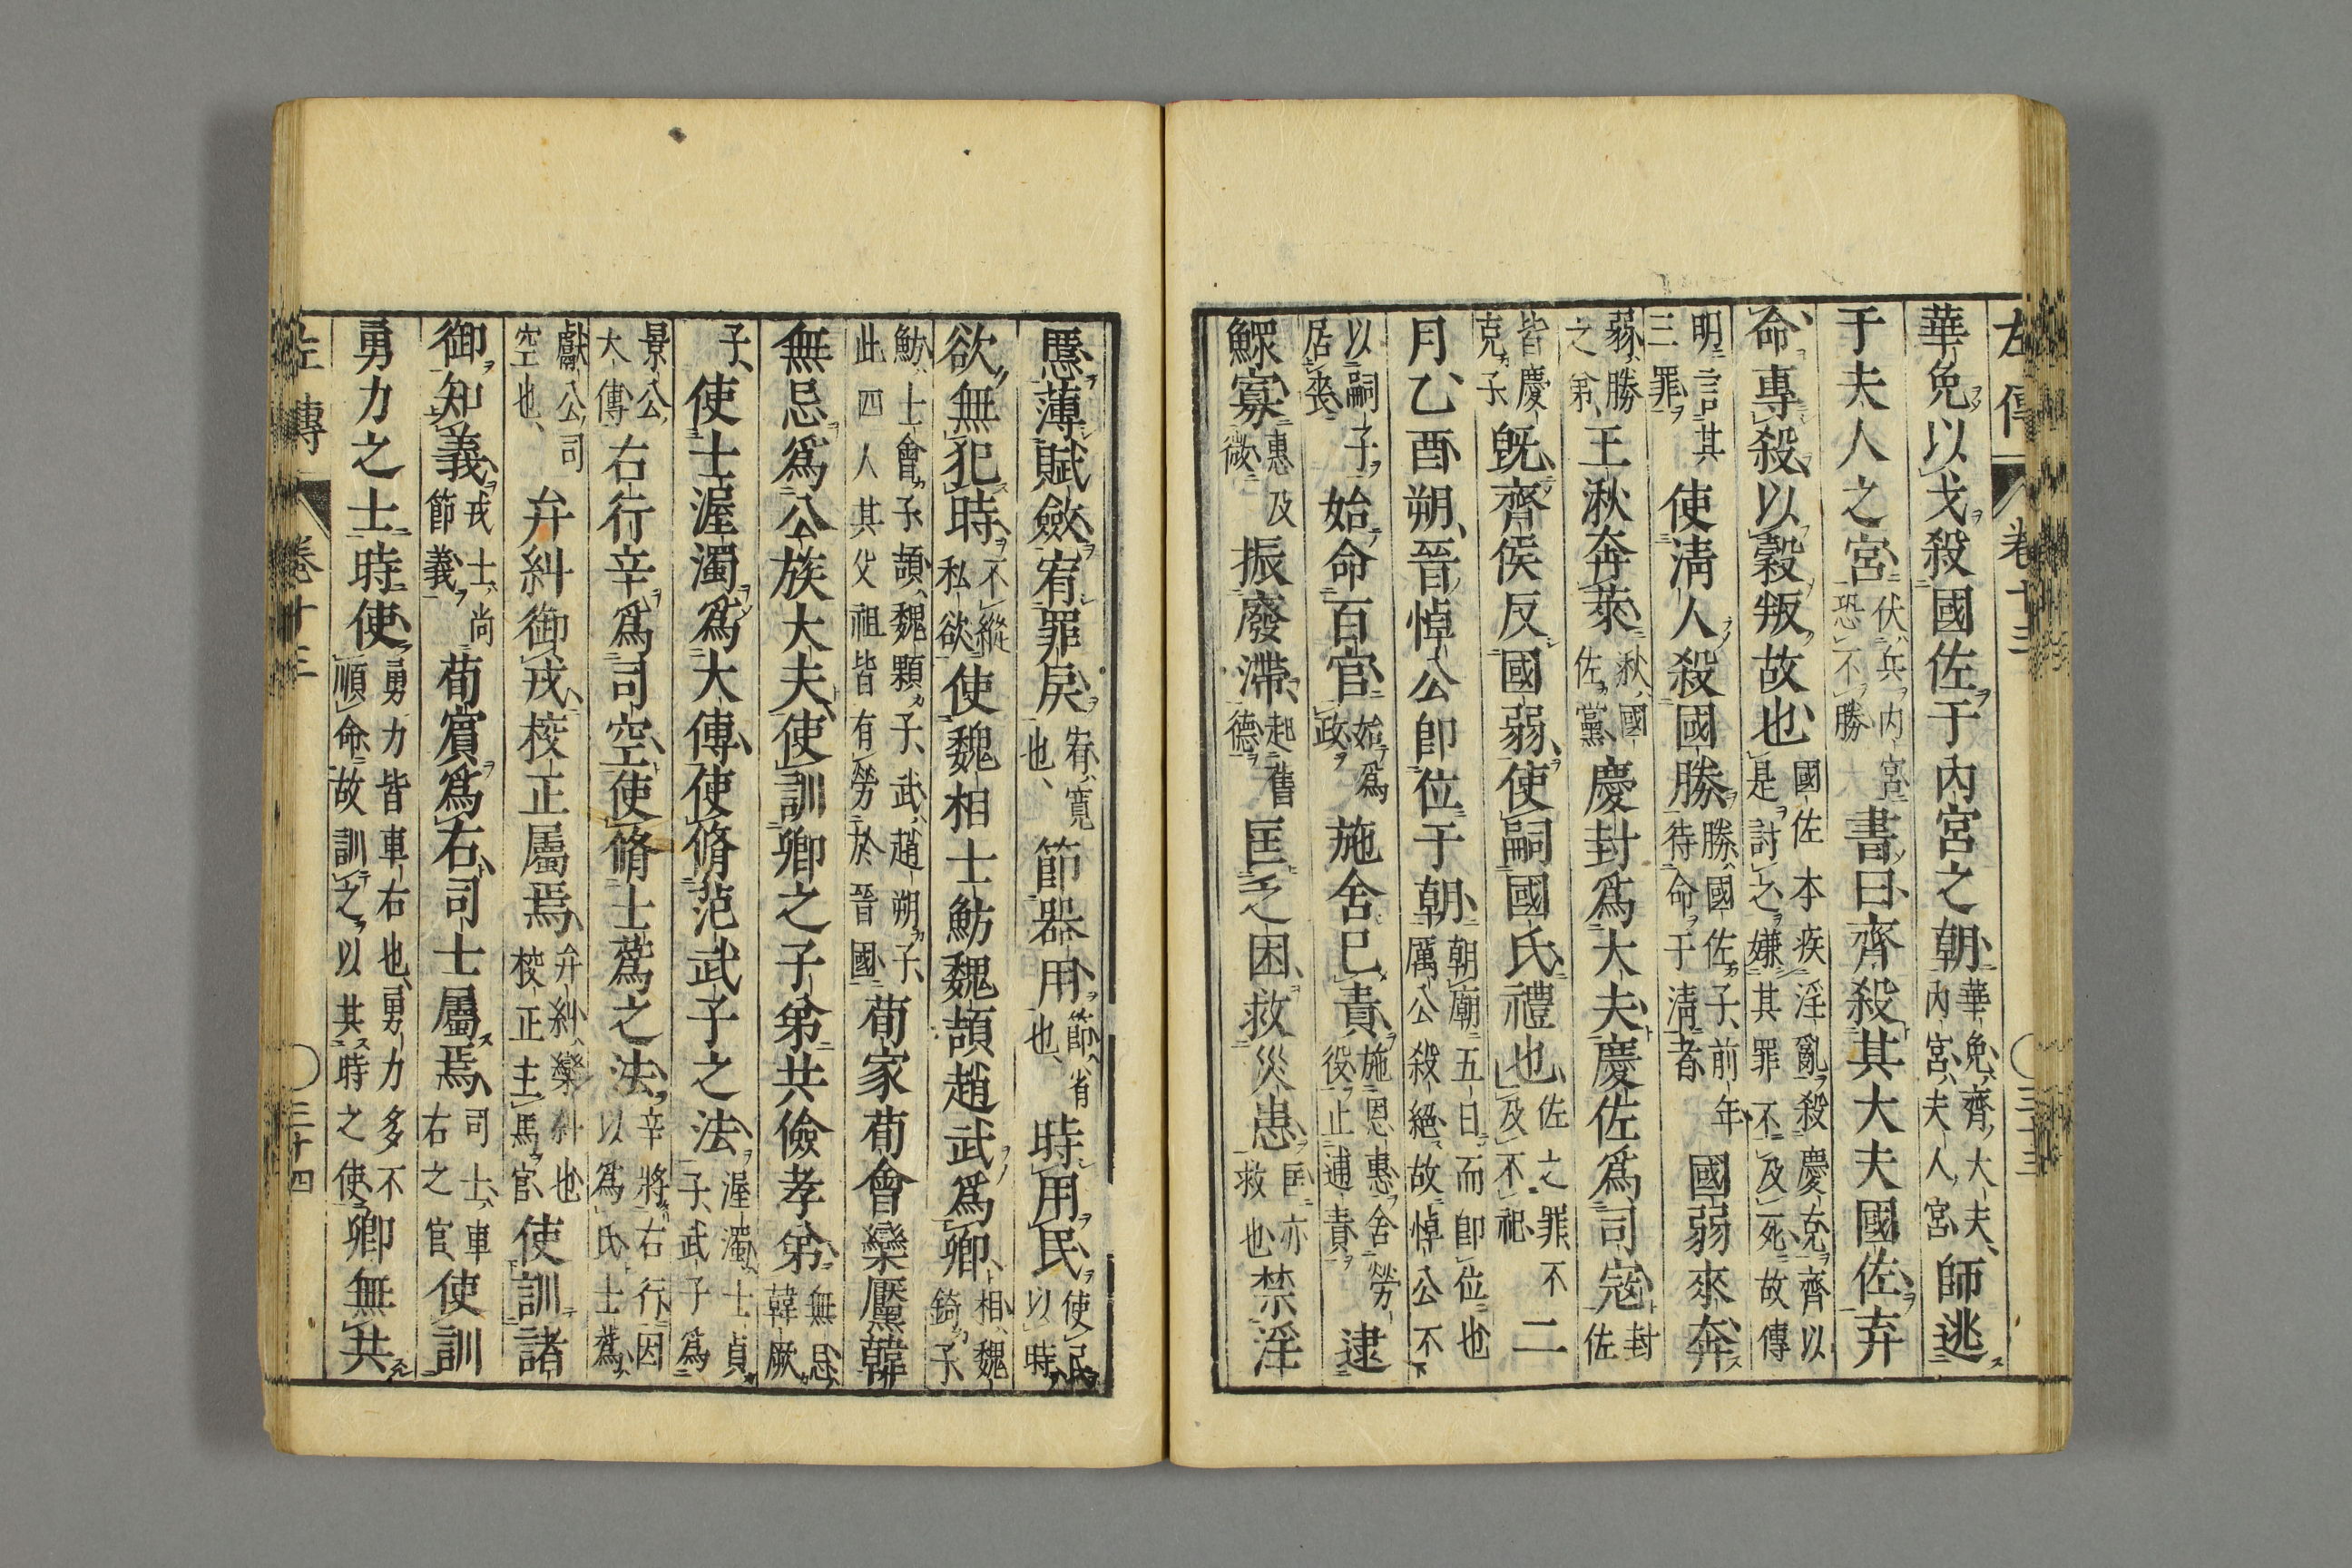 左傳 卷十三 三十三
華免以戈殺國佐于內宮之朝華免齊大夫內宮夫人宮師逃
于夫人之宮伏兵內宮恐不勝書曰齊殺其大夫國佐弃
命專殺以穀叛故也國佐本疾淫亂殺慶克齊以是討之嫌其罪不及死故傳
明言其三罪使淸人殺國勝勝國佐子前年待命于淸者國弱來奔
弱勝之弟王湫奔萊湫國佐黨慶封爲大夫慶佐爲司寇封佐
皆慶克子旣齊侯反國弱使嗣國氏禮也佐之罪不及不祀二
月乙酉朔晉悼公卽位于朝朝廟五日而卽位也厲公殺絕故悼公不
以嗣子居喪始命百官始爲政施舍已責施恩惠舍勞役止逋責逮
鰥寡惠及微振廢滯起舊德匡乏困救災患匡亦救也禁淫
慝薄賦斂宥罪戾宥寬也節器用節省也時用民使民以時
欲無犯時不縱私欲使魏相士魴魏頡趙武爲卿相魏錡子
魴士會子頡魏顆子武趙朔子此四人其父祖皆有勞於晉國荀家荀會欒黶韓
無忌爲公族大夫使訓卿之子弟共儉孝弟無忌韓厥
子使士渥濁爲大傅使脩范武子之法渥濁士貞子武子爲
景公大傅右行辛爲司空使脩士蔿之法辛將右行因以爲氏士蔿
獻公司空也弁糾御戎校正屬焉弁糾欒糾也校正主馬官使訓諸
御知義戎士尚節義荀賓爲右司士屬焉司士車右之官使訓
勇力之士時使勇力皆車右也勇力多不順命故訓之以其時之使卿無共
左傳 卷十三 三十四